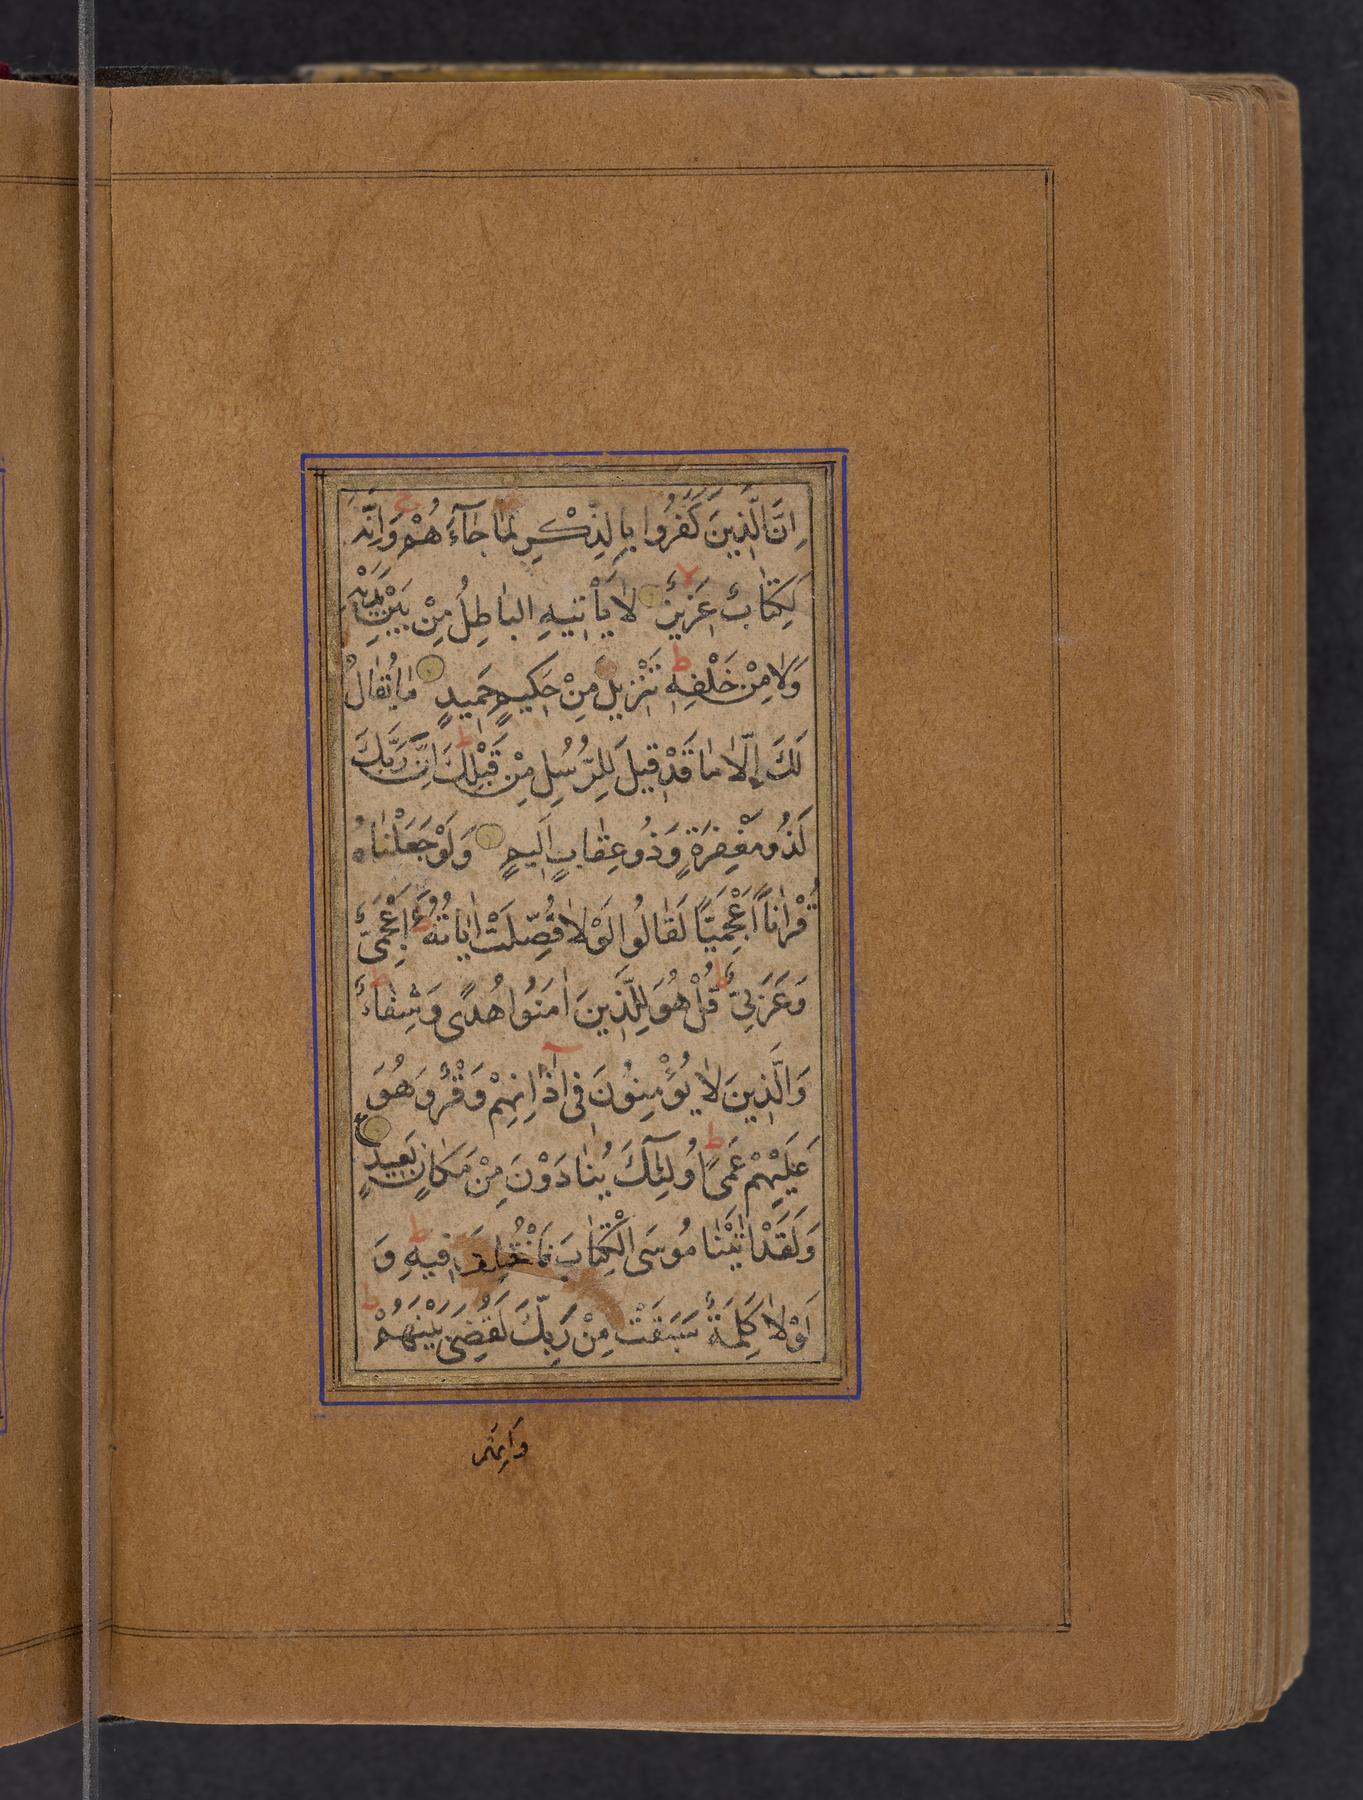 اِنَّ الَّذِينَ كَفَرُوا بِالذِّكْرِ لَمَّا جَآءَهُمْ وَاِنَّهُ
لَكِتَابٌ عَزِيزٌ لَا يَأْتِيهِ الْبَاطِلُ مِنْ بَيْنِ يَدَيْهِ
وَلَا مِنْ خَلْفِهِ تَنْزِيلٌ مِنْ حَكِيمٍ حَمِيدٍ مَا يُقَالُ
لَكَ اِلَّا مَا قَدْ قِيلَ لِلرُّسُلِ مِنْ قَبْلِكَ اِنَّ رَبَّكَ
لَذُو مَغْفِرَةٍ وَذُو عِقَابٍ اَلِيمٍ وَلَوْ جَعَلْنَاهُ
قُرْاٰنًا اَعْجَمِيًّا لَقَالُوا لَوْلَا فُصِّلَتْ اٰيَاتُهُ ءَاَعْجَمِيٌّ
وَعَرَبِيٌّ قُلْ هُوَ لِلَّذِينَ اٰمَنُوا هُدًى وَشِفَاءٌ
وَالَّذِينَ لَا يُؤْمِنُونَ فِى اٰذَانِهِمْ وَقْرٌ وَهُوَ
عَلَيْهِمْ عَمًى اُولٰٓئِكَ يُنَادَوْنَ مِنْ مَكَانٍ بَعِيدٍ
وَلَقَدْ اٰتَيْنَا مُوسَى الْكِتَابَ فَاخْتُلِفَ فِيهِ وَ
لَوْلَا كَلِمَةٌ سَبَقَتْ مِنْ رَبِّكَ لَقُضِىَ بَيْنَهُمْ
وَاِنَّهُمْ